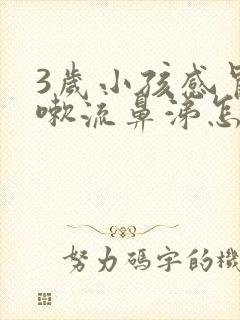 3歲小孩感
嗽流鼻涕怎
努力碼字的機